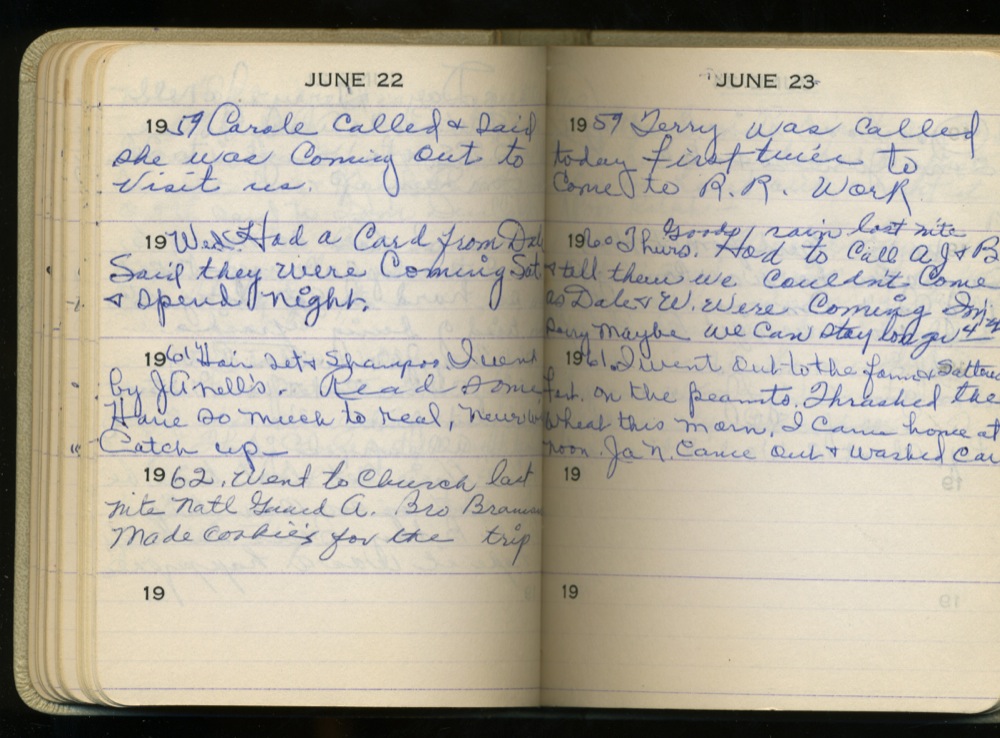 JUNE 22
1959 Carole called & Said
she was Coming out to
Visit us.
19 Wed. Had a Card from Dale
Said they were Coming Sat.
& spend night.
1961 Hair Set & Shampoo. I went
by JA nells. Read some
Have so much to read, never
Catch up—
1962. Went to Church last
nite Natl Guard A. Bro
Made cookies for the trip
19
JUNE 23
1959 Terry was called
today first time to
Come to R.R. Work
Good rain last nite
1960 Thurs. Had to Call A J & B
& tell them we couldn't Come
as Dale & W. were Coming
Sorry Maybe we Can stay longer 4th
1961. I went out to the farm & Scattered
Fert. on the peanuts. Thrashed the
wheat this morn. I came home at
noon. Ja N. Came out & washed Car
19
19